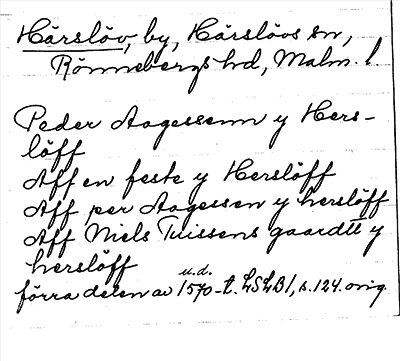 Härslöv, by, Härslövs sn,
Rönnebergs hd, Malm. l.
Peder Aagessenn y Hers-
löff
Aff en feste y Herslöff
Aff per Aagessen y herslöff
Aff Niels Tuissens gaardtt y
herslöff
u.d.
förra delen av 1570-t. LSLB1, s. 124. orig.